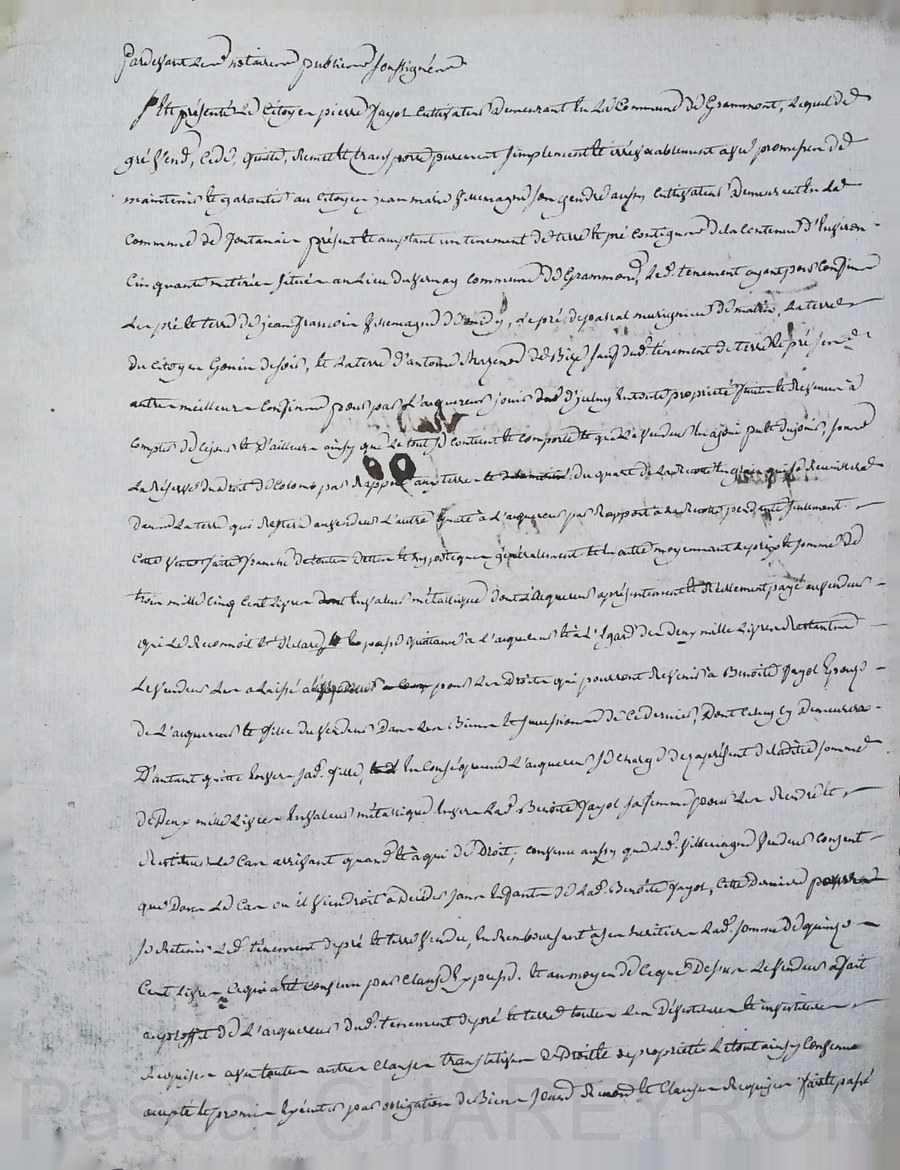 Pardevant Les notaires publics soussignés
s'est présenté Le Citoyen pierre Jayol Cultivateur Demeurant En La Commune de Grammont, Lequel de
gré Vend, Cede, quitte, Remet et transporte purement simplement et irrévocablement avec promesse de
maintenir et garantir au Citoyen jean marie Villemagne son gendre aussy Cultivateur Demeurant En La
Commune de fontanès présent et acceptant un tenement de terre et pré Contigus de la Contenue d'Environ
Cinquante métérées située au Lieu du Vernay Commune de Grammond, Led. tenement ayant pour Confins
Les pré et terre de jean francois Villemagne de, Le pré de pascal murigneux de, La terre
du Citoyen Gonin de soir, et La terre d'antoine de Bize sauf dud. tenement de terre et pré ses
autres meilleurs Confins pour par L'acquereur jouir En toute propriété fruits et Revenus à
Compter de Ce jour et D'ailleurs ainsy que Le tout se contient et comporte et que Le Vendeur En a joui pu et du jouir, sous
La Réserve du Droit de Colons par Rapport aux terres du quart de La Recolte En grain qui se Recueillera
Dans La terre qui Restera au Vendeur L'autre quart à L'acquereur par Rapport à La Recolte pendante seulement
Cette Vente faite franche de toutes dettes et hypotèques généralement et En outre moyennant Le prix et somme de
trois mille Cinq Cent Livres En valeur métallique dont L'acquereur a présentement et Réellement payé au Vendeur
qui Le Reconnoit et Déclare quittance à L'acquereur et à L'Egard des deux mille Livres Restantes
Le Vendeur Les a Laissé à pour Les Droits qui pourront Revenir à Benoite Jayol Epouse
de L'acquereur et fille du Vendeur Dans Les Biens et succession de Ce dernier, Dont Celuy cy Demeurera
D'autant quitte Envers sad. fille, En Conséquence L'acquereur se Charge dez a présent de Ladite somme
de Deux mille Livres En valeur métallique Envers Lad. Benoite Jayol sa femme pour Les Rendre et
Restituer Le Cas arrivant quand et à qui de Droit, convenu aussy que Led. Villemagne Vendeur Consent
que Dans Le Cas ou il Viendroit à Décéder sans Enfants de Lad. Benoite Jayol, Cette Derniere
se Retenir Led. tenement de pré et terre Vendu, En Remboursant à ses heritiers Lad. somme de quinze
Cent Livres Ce qui a été Convenu par Clause Expresse. Et au moyen de Ce que Dessus Le Vendeur a fait
au proffit de L'acquereur dud. tenement de pré et terre toutes Les Dévestitures et investitures
Requises avec toutes autres Clauses translatives De Droit et de propriété Le tout ainsy Convenu
accepté et promis Exécuter par obligation de Biens Cours Renond et Clauses Requises fait et passé
Pascal CHAREYRON